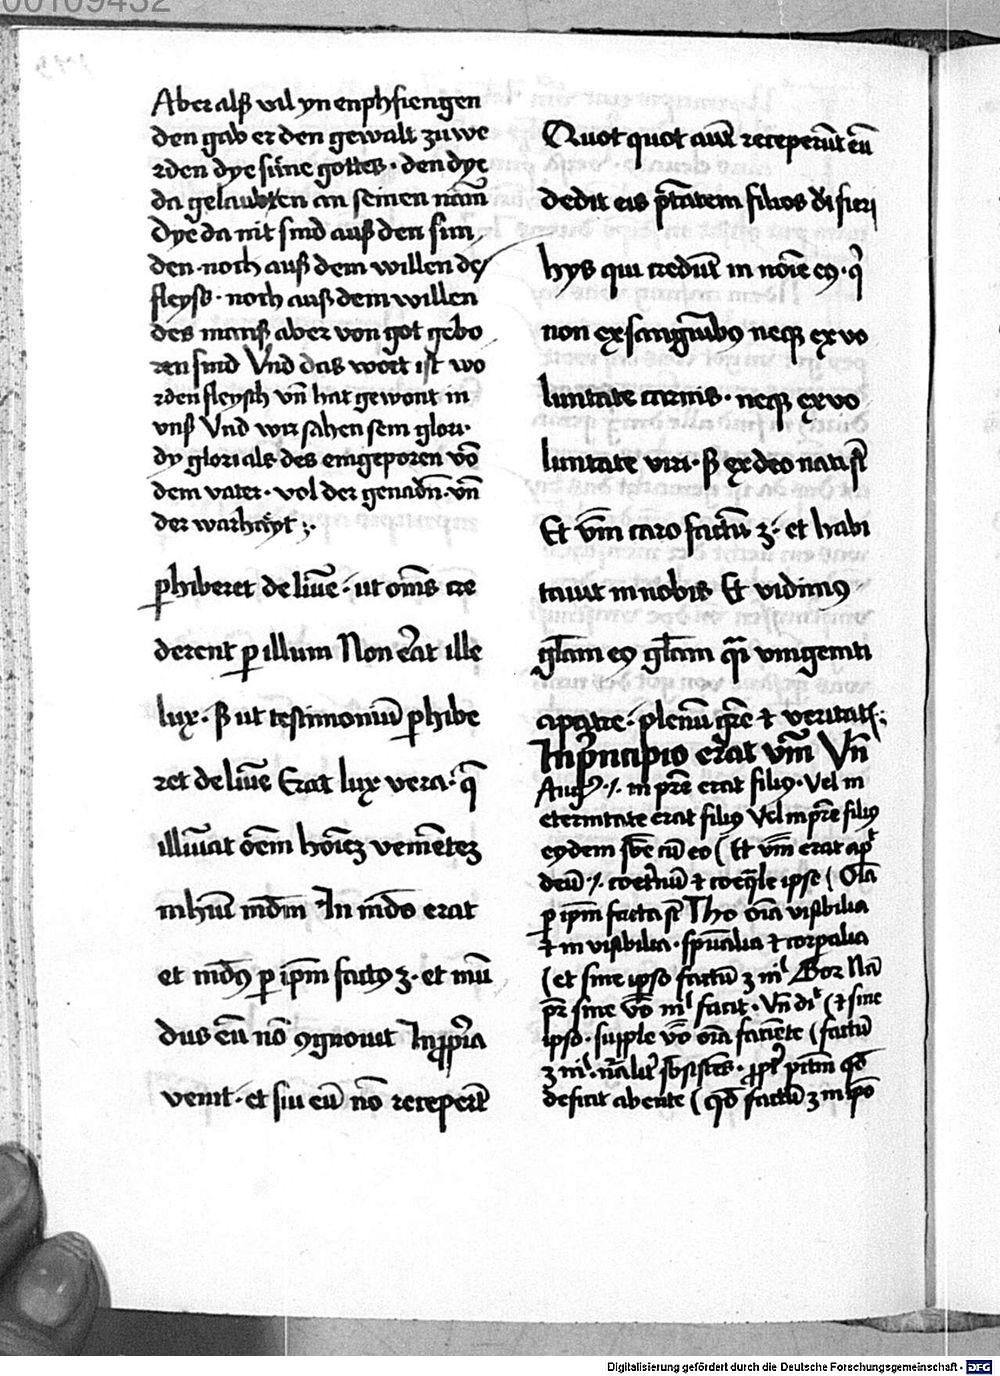 00109432
Aber alß vil yn enphfiengen
den gab er den gewalt zu we
rden dye süne gottes · den dye
da gelaubten an seinen nam̄
Dye da nit sind auß den sun
den · noch auß dem willen des
fleysß · noch auß dem willen
des manß aber von got gebo
ren sind Vnd das wort ist wo
rden fleysch vn̄ hat gewont in
vnß Vnd wir sahen sein glori·
dy glori als · des eingeporen vō
dem vater · vol der genadn̄ · vn̄
der warhayt ;·
ꝑhiberet de lūīe · ut om̄s cre
derent ꝑ illum Non erat ille
lux · ß ut testimoniū ꝑhibe
ret de lūīe Erat lux vera · q̄
illūīat ōem hoīeꝫ venīēteꝫ
in hūc mūdm In mūdo erat
et mūdꝰ ꝑ ip̄m factꝰ ꝫ · et mū
dus eū nō ꝯgnouit In ꝓpia
venit · et sui eū nō receperūt
Quot quot aūt receperūt eū
dedit eis ptātem filios dī fieri
hys qui credūt in noīe eꝰ · qͥ
non ex sanguībꝰ neqꝫ ex vo
luntate carnis · neqꝫ ex vo
luntate viri · ß ex deo nati st̄
Et vm̄ caro factū ꝫ · et habi
tauit in nobis Et vidimꝰ
gl̄am eꝰ gl̄am q̄i vnigeniti
a patre · plenū gr̄e ⁊ veritatis
In principio erat vm̄ Vn̄
Augꝰ ·/· in pr̄e erat filiꝰ · Vel in
eternitate erat filiꝰ Vel in pr̄e filiꝰ
eydem sbē cū eo ( Et vm̄ erat apͩ
deū ·/· coeternū ⁊ coeq̄le ipso ( Oīa
ꝑ ip̄m facta st̄ Tho oīa visibilia
⁊ in visibilia · spūalia ⁊ corꝑalia
( et sine ipso factū ꝫ niͨl Gor Nā
pr̄ sine vo niͨl facit · Vn̄ diͨ ( ⁊ sine
ipso · supple vo oīa faciente ( factū
ꝫ niͨl · nāliter sbsistēs
deficit ab ente ( qd̄ factū ꝫ in ipō
Digitalisierung gefördert durch die Deutsche Forschungsgemeinschaft - DFG